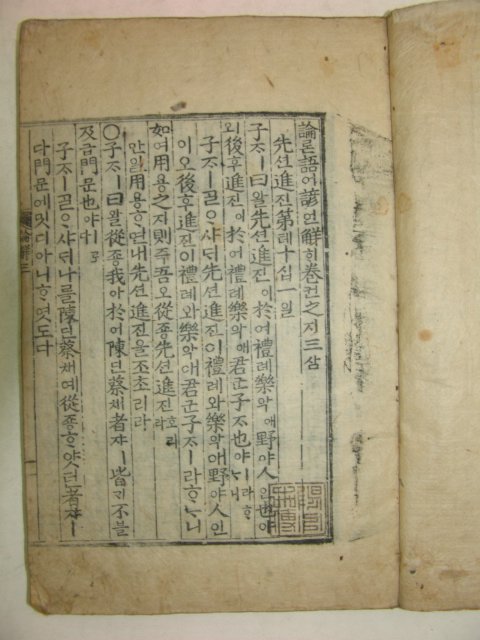 論론語어諺언解ᄒᆡ卷권之지三삼
先션進진第뎨十십一일
子ᄌᆞㅣ曰왈先션進진이於어禮례樂악애野야人인也야
ㅣ오後후進진이於어禮례樂악애君군子ᄌᆞ也야ㅣ라ᄒᆞᄂᆞ니
子ᄌᆞㅣᄀᆞᆯᄋᆞ샤ᄃᆡ先션進진이禮례와樂악애野야人인
이오後후進진이禮례와樂악애君군子ᄌᆞㅣ라ᄒᆞᄂᆞ니
如여用용之지則즉吾오從죵先션進진호리라
만일用용ᄒᆞ면내先션進진을조초리라
○子ᄌᆞㅣ曰왈從죵我아於어陳딘蔡채者쟈ㅣ皆ᄀᆡ不블
及급門문也야ㅣ로다
子ᄌᆞㅣᄀᆞᆯᄋᆞ샤ᄃᆡ나ᄅᆞᆯ陳딘蔡채예從죵ᄒᆞ얏던者쟈ㅣ
다門문에밋디아니ᄒᆞ엿도다
論解三